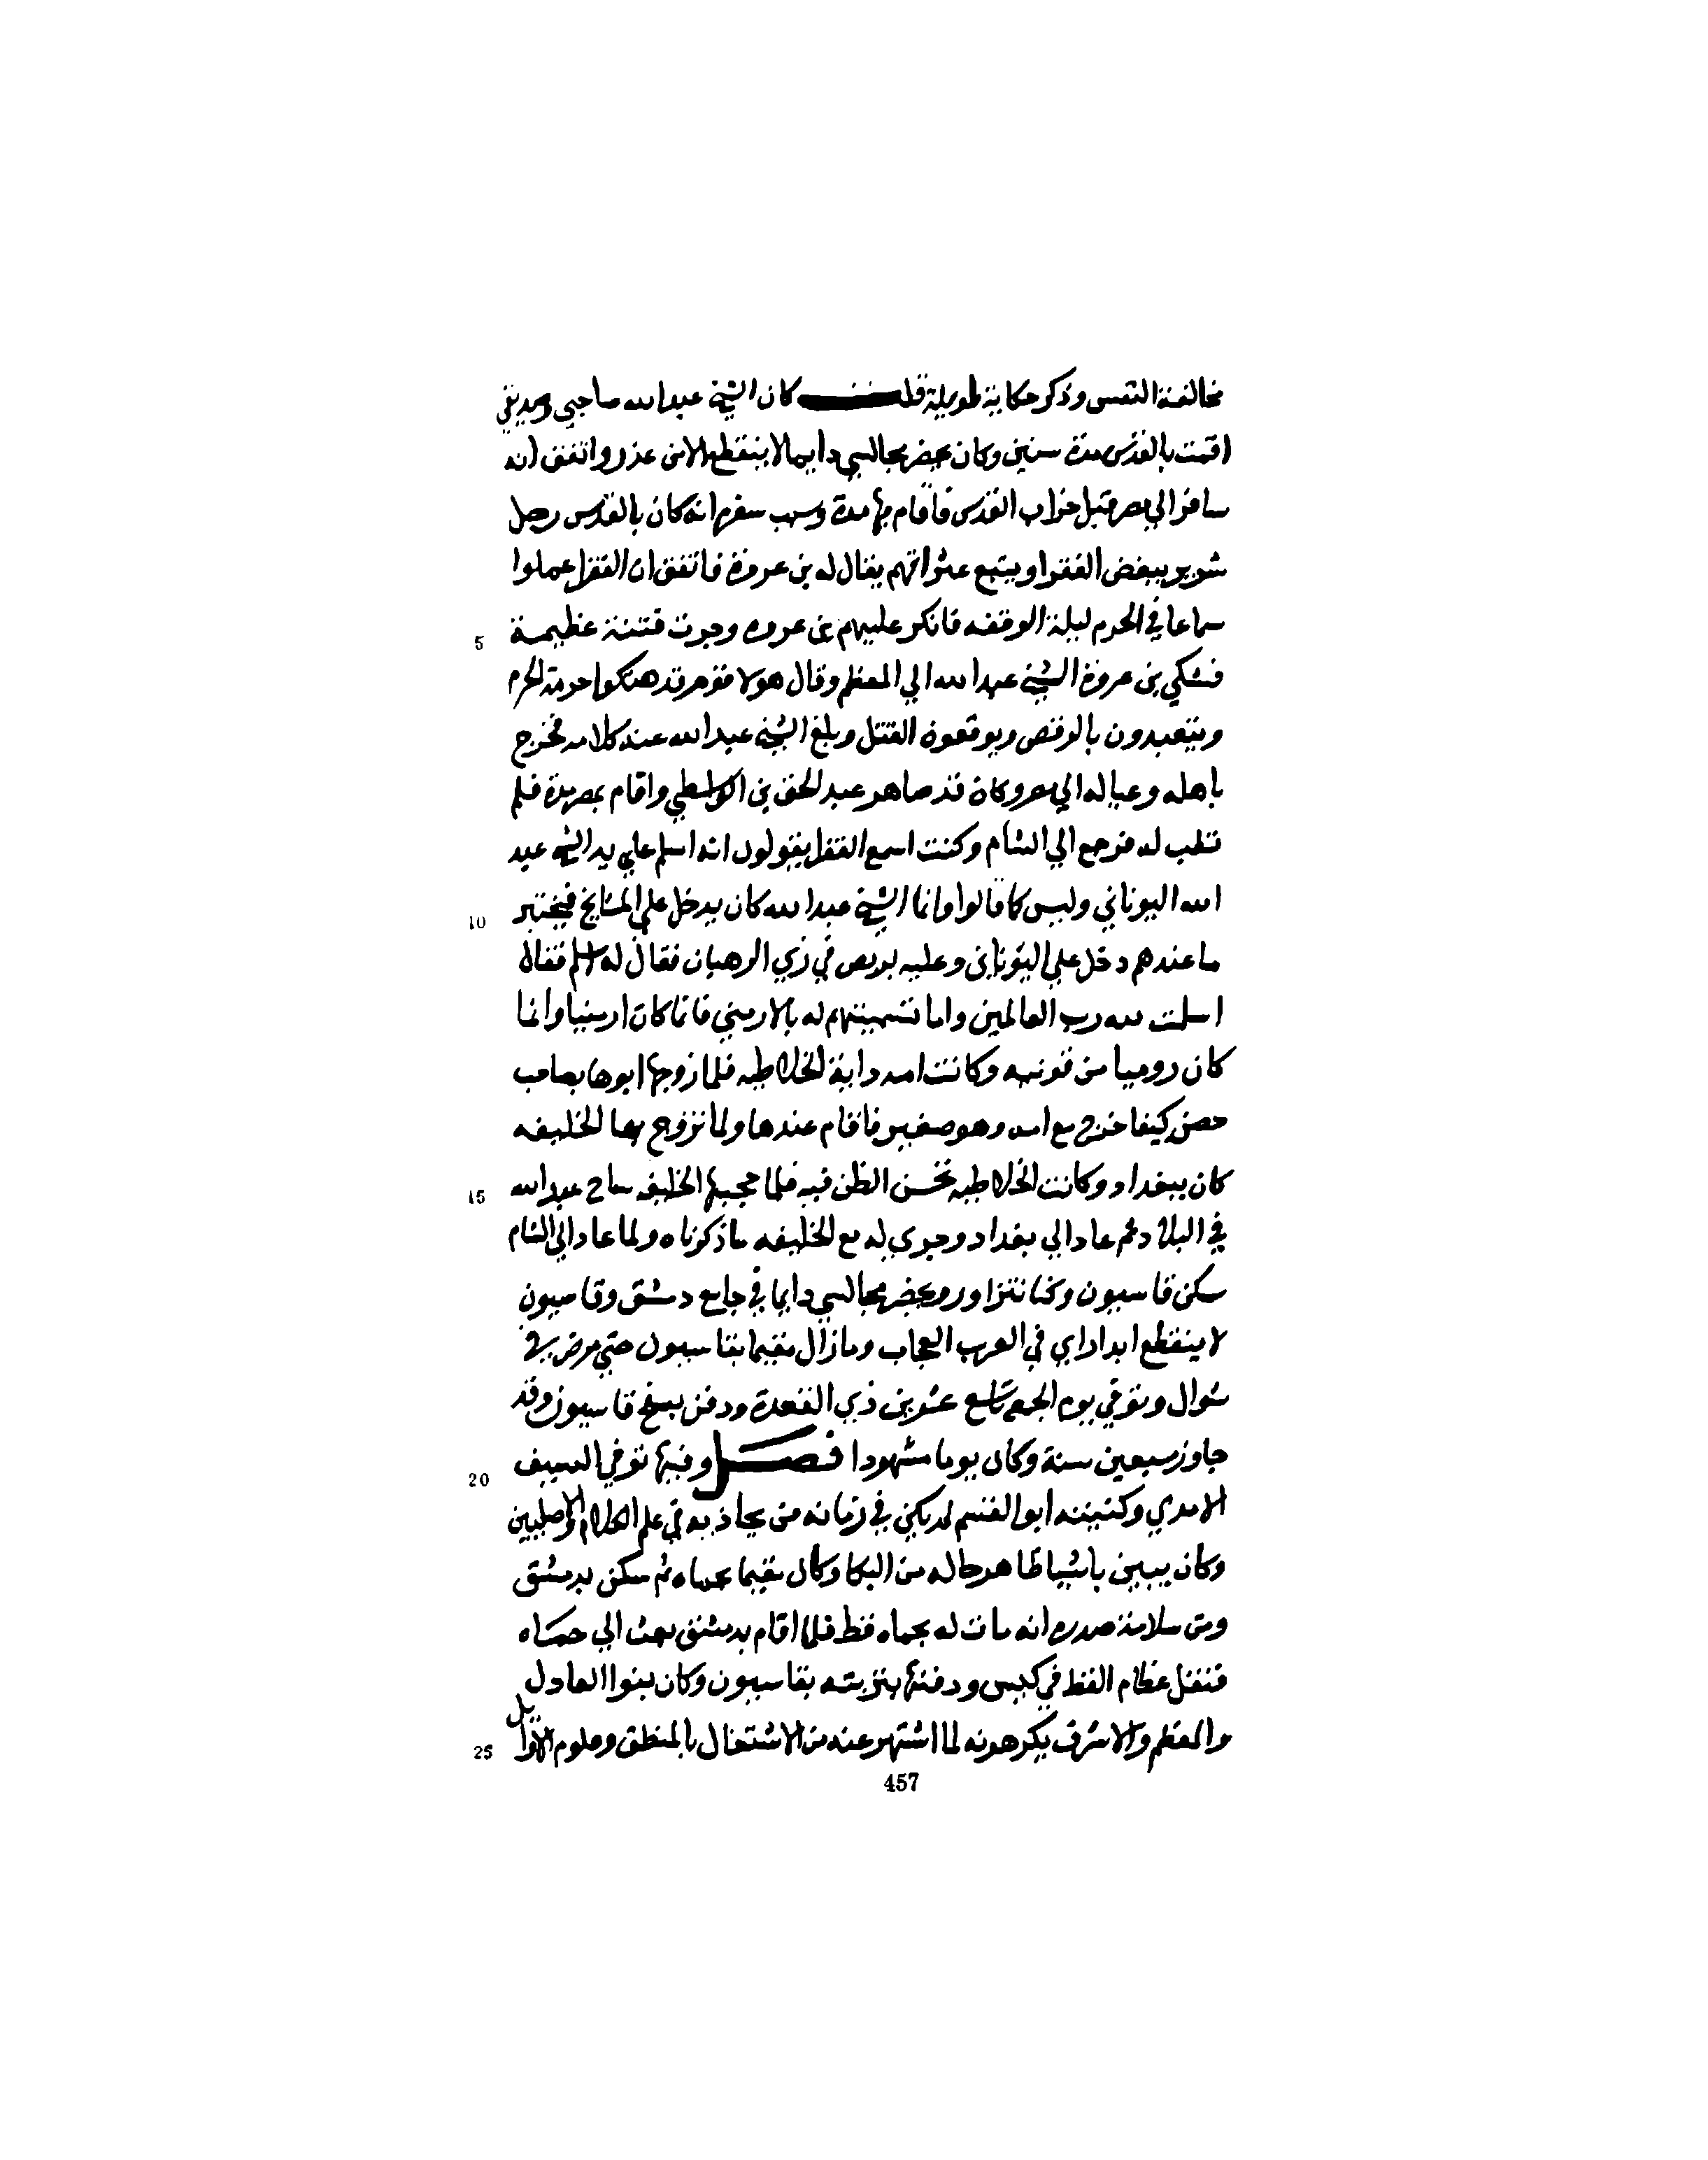 مخالفة النفس وذكر حكاية طويلة قلت كان الشيخ عبد الله صاحبي وصديقي
اقمت بالقدس مدة سنين وكان يحضر مجالسي دايما لا ينقطع الا من عذر واتفق انه
سافر الي مصر قبل خراب القدس فاقام بها مدة وسبب سفره انه كان بالقدس رجل
شوير يبغض الفقرا ويتبع عثراتهم يقال له بن عروة فاتفق ان الفقرا عملوا
سماعا في الحرم ليلة الوقفه فانكر عليهم بن عروه وجرت فتنة عظيمة
5
فشكي بن عروة الشيخ عبد الله الي المعظم وقال هولا قوم قد هتكوا حرمة الحرم
ويتعبدون بالرقص ويوقعون القتل وبلغ الشيخ عبد الله عنه كلامه فخرج
باهله وعياله الي مصر وكان قد صاهر عبد الحق بن الواسطي واقام بمصر مدة فلم
تطب له فرجع الي الشام وكنت اسمع الفقرا يقولون انه اسلم علي يد الشيخ عبد
الله اليوناني وليس كما قالوا وانما الشيخ عبد الله كان يدخل علي المشايخ فيختبر
10
ما عندهم دخل علي اليوناني وعليه برنص في زي الرهبان فقال له اسلم فقال
اسلمت لله رب العالمين واما تسميتهم له بالارمني فانما كان ارمنيا وانما
كان روميا من قونيه وكانت امه داية الخلاطيه فلما زوجها ابوها بصاحب
حصن كيفا خرج مع امه وهو صغير فاقام عندها ولما تزوج بها الخليفه
كان ببغداد وكانت الخلاطيه تحسن الظن فيه فلما حجبها الخليفه ساح عبد الله
15
في البلاد ثم عاد الي بغداد وجري له مع الخليفه ما ذكرناه ولما عاد الي الشام
سكن قاسيون وكنا نتزاور ويحضر مجالسي دايما في جامع دمشق وقاسيون
لا ينقطع ابدا وما زال مقيما بقاسيون حتي مرض في
شوال وتوفي يوم الجمعة تاسع عشرين ذي القعدة ودفن بسفح قاسيون وقد
جاوز سبعين سنة وكان يوما مشهودا فصل وفيها توفي السيف
20
الامدي وكنيته ابو القسم لم يكن في زمانه من يجاذبه في علم الكلام والاصليين
وكان يبين باشيا ظاهر حاله من البكا وكان مقيما بحماه ثم سكن بدمشق
ومن سلامة صدره انه مات له بحماه قط فلما اقام بدمشق بعث الي حماه
فنقل عظام القط في كيس ودفنها بتربته بقاسيون وكان بنوا العادل
والمعظم والاشرف يكرهونه لما اشتهر عنه من الاشتغال بالمنطق وعلوم الاوايل
25
457